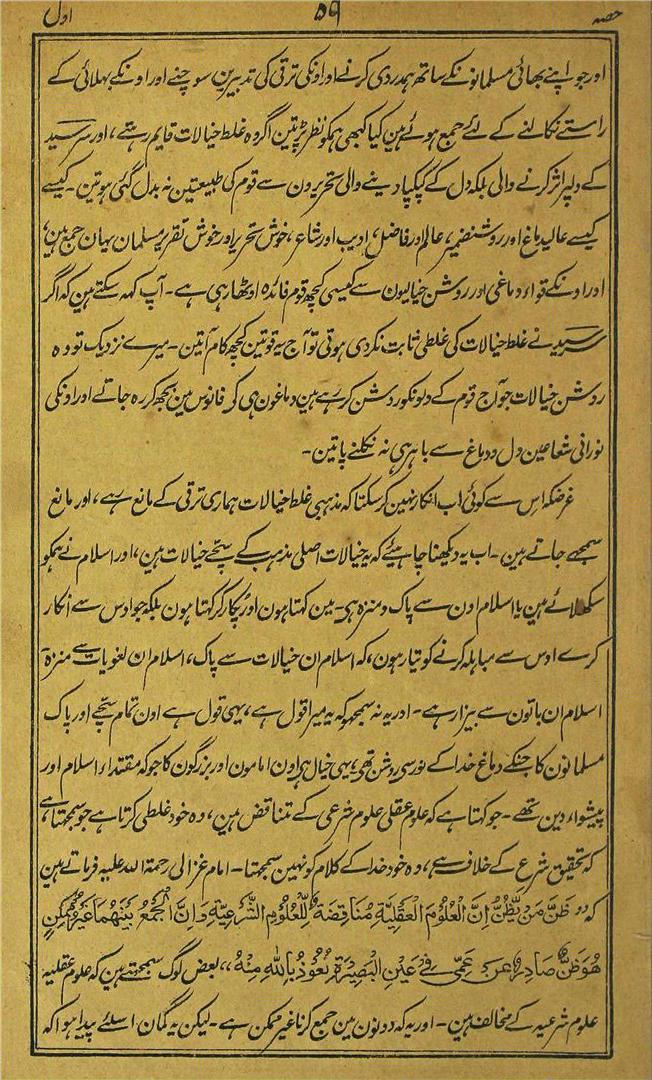 حصہ ۵۹ اول
اور جو اپنے بھائی مسلمانونکے ساتھ ہمدردی کرنے اور اونکی ترقی کی تدبیرین سوچنے اور اونکے بہلائی کے
راستے نکالنے کے لئے جمع ہوئے ہین کیا کبھی ہمکو نظر پڑتین اگر وہ غلط خیالات قایم رہتے، اور سرسید
کے دلپر اثر کرنے والی بلکہ دل کے کپکپا دینے والی تحریرون سے قوم کی طبیعتین نہ بدل گئی ہوتین۔ کیسے
کیسے عالیدماغ اور روشنضمیر، عالم اور فاضل، ادیب اور شاعر، خوش تحریر اور خوش تقریر مسلمان یہان جمع ہین،
اور اونکے قواء دماغی اور روشن خیالیون سے کیسی کچھ قوم فائدہ اوٹھا رہی ہے۔ آپ کہہ سکتے ہین کہ اگر
سرسید نے غلط خیالات کی غلطی ثابت نکردی ہوتی تو آج یہ قوتین کچھ کام آتین۔ میرے نزدیک تو وہ
روشن خیالات جو آج قوم کے دلونکو روشن کر رہے ہین دماغون ہی کی فانوس مین بجھ کر رہ جاتے اور اونکی
نورانی شعاعین دل و دماغ سے باہر ہی نہ نکلنے پاتین۔
غرضکہ اس سے کوئی اب انکار نہین کر سکتا کہ مذہبی غلط خیالات ہماری ترقی کے مانع رہے، اور مانع
سمجھے جاتے ہین۔ اب یہ دیکھنا چاہیئے کہ یہ خیالات اصلی مذہب کے سچے خیالات ہین، اور اسلام نے ہمکو
سکھلائے ہین یا اسلام اون سے پاک و منزہ ہی۔ مین کہتا ہون اور پکار کر کہتا ہون بلکہ جو اوس سے انکار
کرے اوس سے مباہلہ کرنے کو تیار ہون، کہ اسلام ان خیالات سے پاک، اسلام ان لغویات سے منزہ
اسلام ان باتون سے بیزار ہے۔ اور یہ نہ سمجھو کہ یہ میرا قول ہے، یہی قول ہے اون تمام سچے اور پاک
مسلمانون کا جنکے دماغ خدا کے نور سی روشن تھے، یہی خیال ہی اون امامون اور بزرگون کا جو کہ مقتداء اسلام اور
پیشواء دین تھے۔ جو کہتا ہے کہ علوم عقلی علوم شرعی کے متناقض ہین، وہ خود غلطی کرتا ہے جو سمجھتا ہے
کہ تحقیق شرع کے خلاف ہے، وہ خود خدا کے کلام کو نہین سمجھتا۔ امام غزالی رحمۃ اللہ علیہ فرماتے ہین
کہ ”ظَنَّ مَنْ يَّظُنُّ اِنَّ الْعُلُوْمَ الْعَقْلِيَّةَ مُنَاقِضَةٌ لِّلْعُلُوْمِ الشَّرْعِيَّةِ وَاِنَّ الْجَمْعَ بَيْنَهُمَا غَيْرُ مُمْكِنٍ
هُوَ ظَنٌّ صَادِرٌ عَنْ عَمًى فِيْ عَيْنِ الْبَصِيْرَةِ نَعُوْذُ بِاللّٰهِ مِنْهُ“ بعض لوگ سمجھتے ہین کہ علوم عقلیہ
علوم شرعیہ کے مخالف ہین۔ اور یہ کہ دونون مین جمع کرنا غیر ممکن ہے۔ لیکن یہ گمان اسلئے پیدا ہوا کہ